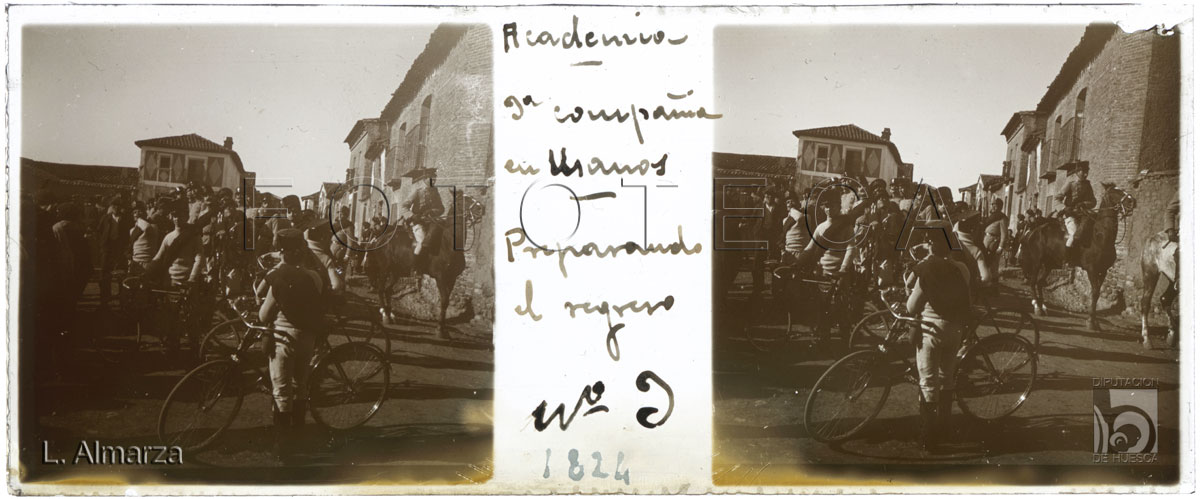 Academia
3ª compañia
en Usanos
Preparando
el regreso
Nº 3
1824
FOTOTECA
L. Almarza
DIPUTACION
DE HUESCA